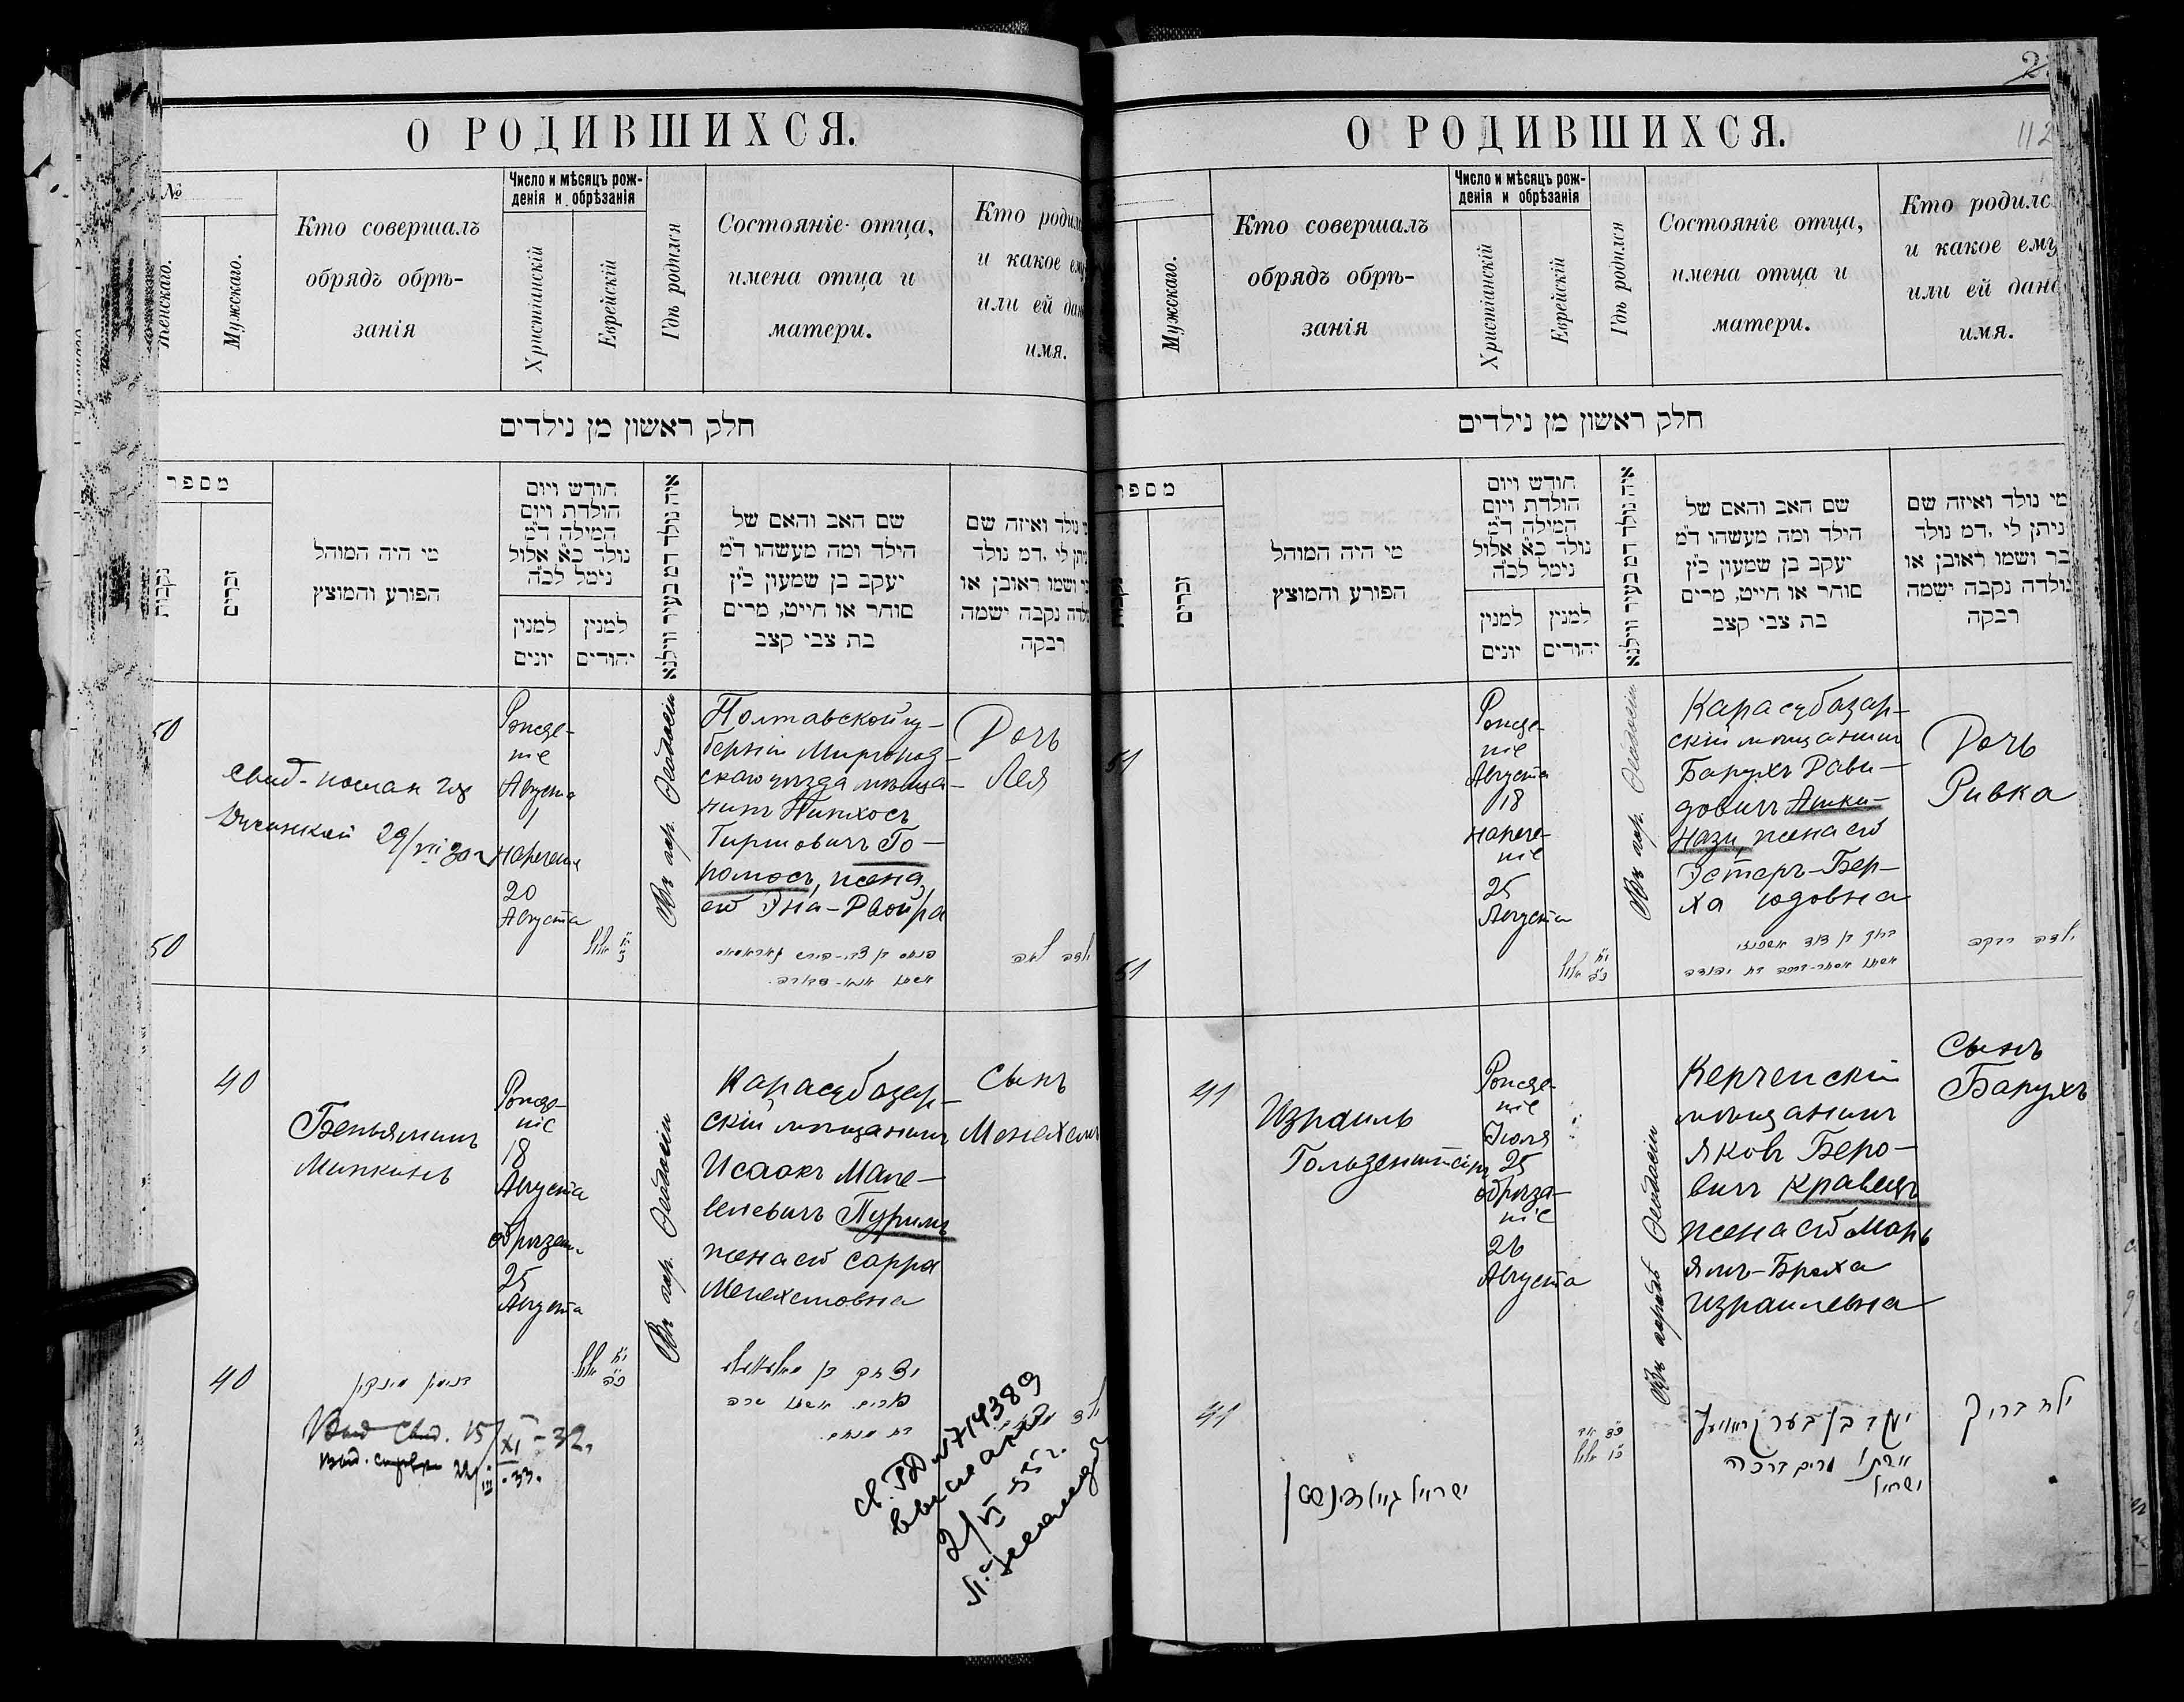 О РОДИВШИХСЯ.
№
Женскаго.
Мужскаго.
Кто совершалъ
обрядъ обрѣ-
занія
Число и мѣсяцъ рож-
денія и обрѣзанія
Христіанскій
Еврейскій
Гдѣ родился
Состояніе отца,
имена отца и
матери.
Кто родилс
и какое ему
или ей дан
имя.
חלק ראשון מן נילדים
מספר
זכרים
מי היה המוהל
הפורע והמוצץ
חודש ויום
הולדת ויום
המילה ד״מ
נולד כ״א אלול
נימל לכ״ה
למנין
יונים
למנין
יהודים
איה נולד דמ בעיר ווילנא
שם האב והאם של
הילד ומה מעשהו ד״מ
יעקב בן שמעון כ״ץ
סוחר או חייט, מרים
בת צבי קצב
נולד ואיזה שם
ניתן לי ,דמ נולד
ושמו ראובן או
נקבה ישמה
רבקה
50
Рожде-
ніе
Августа
нареченіе
20
Августа
Въ гор. Ѳеодосіи
Полтавской гу-
берніи Миргород-
скаго уѣзда мѣща-
нинъ Пинхосъ
Гиршовичъ Го-
жена
его Эна-Двойра
Дочь
Лея
50
40
Беньяминъ
Минкинъ
Рожде-
ніе
18
Августа
обрѣзан.
25
Августа
Въ гор. Ѳеодосіи
Карасубазар-
скій мѣщанинъ
Исаакъ Мале-
Пуримъ
жена его Сарра
Менехемовна
Сынъ
Менахемъ
40
בנימין מינקין
Выд. Свид. 15/XI-32.
22/III-33.
св. ГЮ №714389
2/VI-55 г.
О РОДИВШИХСЯ.
112
Мужскаго.
Кто совершалъ
обрядъ обрѣ-
занія
Число и мѣсяцъ рож-
денія и обрѣзанія
Христіанскій
Еврейскій
Гдѣ родился
Состояніе отца,
имена отца и
матери.
Кто родилс
и какое ему
или ей дано
имя.
חלק ראשון מן נילדים
זכרים
מי היה המוהל
הפורע והמוצץ
חודש ויום
הולדת ויום
המילה ד״מ
נולד כ״א אלול
נימל לכ״ה
למנין
יונים
למנין
יהודים
איה נולד דמ בעיר ווילנא
שם האב והאם של
הילד ומה מעשהו ד״מ
יעקב בן שמעון כ״ץ
סוחר או חייט, מרים
בת צבי קצב
מי נולד ואיזה שם
ניתן לי ,דמ נולד
בר ושמו ראובן או
נולדה נקבה ישמה
רבקה
51
Рожде-
ніе
Августа
18
нарече-
ніе
25
Августа
Въ гор. Ѳеодосіи
Карасубазар-
скій мѣщанинъ
Барухъ Дави-
довичъ Ашки-
нази, жена его
Эстеръ-Бер-
ха Юдовна
Дочь
Ривка
51
41
Израиль
Гольденштейнъ
Рожде-
ніе
Іюля
25
обрѣза-
ніе
26
Августа
Въ городѣ Ѳеодосіи
Керченскій
мѣщанинъ
Яковъ Беро-
вичъ Кравецъ
жена его Марь
ямъ-Браха
Израилевна
Сынъ
Барухъ
41
ישראל גולדענשטיין
יעקב בן בער קראוועץ
אשתו מרים ברכה
ילד ברוך